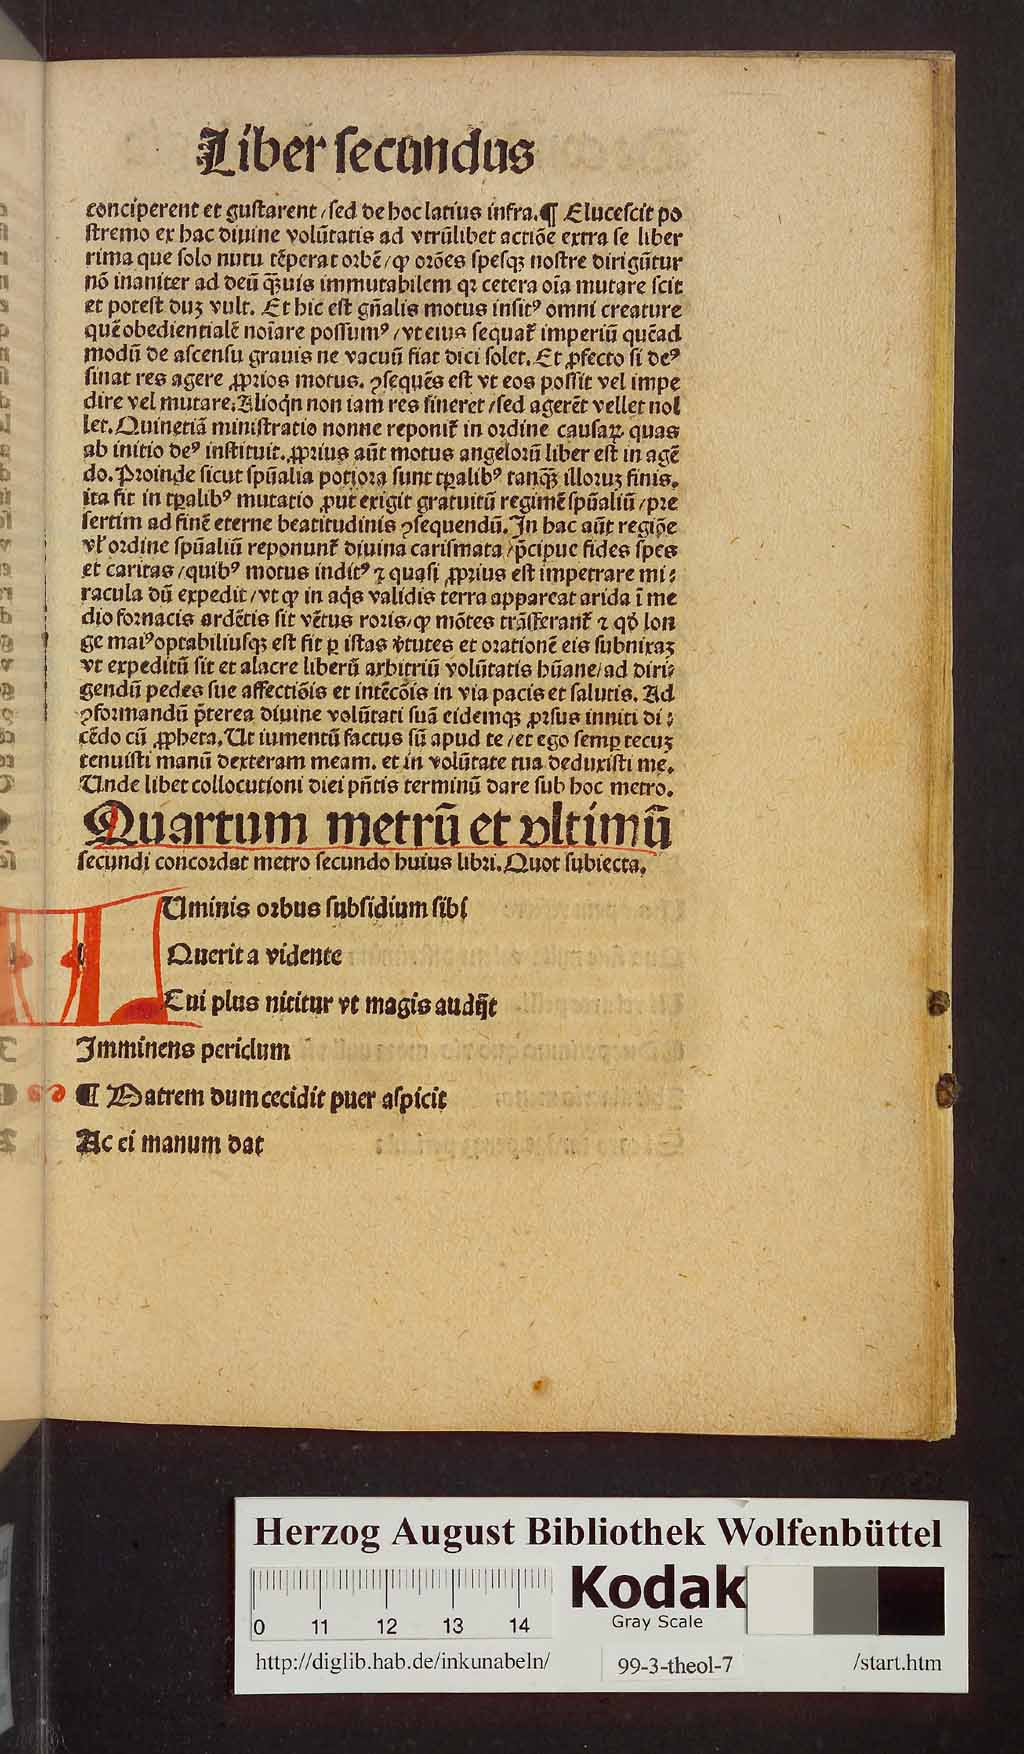 Liber secundus
conciperent et gustarent / sed de hoc latius infra. ¶ Elucescit po
stremo ex hac diuine volũtatis ad vtrũlibet actiõe extra se liber
rima que solo nutu tẽperat orbẽ / ꝙ orões spesqꝫ nostre dirigũtur
nõ inaniter ad deũ q̃ꝫuis immutabilem qꝛ cetera oĩa mutare scit
et potest duꝫ vult. Et hic est gñalis motus insitꝰ omni creature
quẽ obedientialẽ noĩare possumꝰ / vt eius sequat᷑ imperiũ quẽad
modũ de ascensu grauis ne vacuũ fiat dici solet. Et ꝓfecto si deꝰ
sinat res agere ꝓprios motus. ꝯsequẽs est vt eos possit vel impe
dire vel mutare. Alioqn̄ non iam res sineret / sed agerẽt vellet nol
let. Quinetiã ministratio nonne reponit᷑ in ordine causaꝝ quas
ab initio deꝰ instituit. ꝓprius aũt motus angelorũ liber est in agẽ
do. Proinde sicut spũalia potiora sunt tꝑalibꝰ tanq̃ꝫ illoruꝫ finis.
ita fit in tꝑalibꝰ mutatio ꝓut exigit gratuitũ regimẽ spũaliũ / pre
sertim ad finẽ eterne beatitudinis ꝯsequendũ. In hac aũt regiõe
vl' ordine spũaliũ reponunt᷑ diuina carismata / p̃cipue fides spes
et caritas / quibꝰ motus inditꝰ ⁊ quasi ꝓprius est impetrare mi⸗
racula dũ expedit / vt ꝙ in aq̃s validis terra appareat arida ĩ me
dio fornacis ardẽtis sit vẽtus roris / ꝙ mõtes trãsferant᷑ ⁊ qđ lon
ge maiꝰ optabiliusqꝫ est fit ꝑ istas v̓tutes et orationẽ eis subnixaꝫ
vt expeditũ sit et alacre liberũ arbitriũ volũtatis hũane / ad diri⸗
gendũ pedes sue affectiõis et intẽcõis in via pacis et salutis. Ad
ꝯformandũ p̃terea diuine volũtati suã eidemqꝫ ꝓrsus inniti di⸗
cẽdo cũ ꝓpheta. Ut iumentũ factus sũ apud te / et ego semꝑ tecuꝫ
tenuisti manũ dexteram meam. et in volũtate tua deduxisti me.
Unde libet collocutioni diei pñtis terminũ dare sub hoc metro.
Quartum metrũ et vltimũ
secundi concordat metro secundo huius libri. Quot subiecta.
LUminis orbus subsidium sibi
Querit a vidente
Cui plus nititur vt magis audijt
Imminens periclum
¶ Patrem dum cecidit puer aspicit
Ac ei manum dat
Herzog August Bibliothek Wolfenbüttel
0 11 12 13 14
Kodak
Gray Scale
http://diglib.hab.de/inkunabeln/ 99-3-theol-7 /start.htm